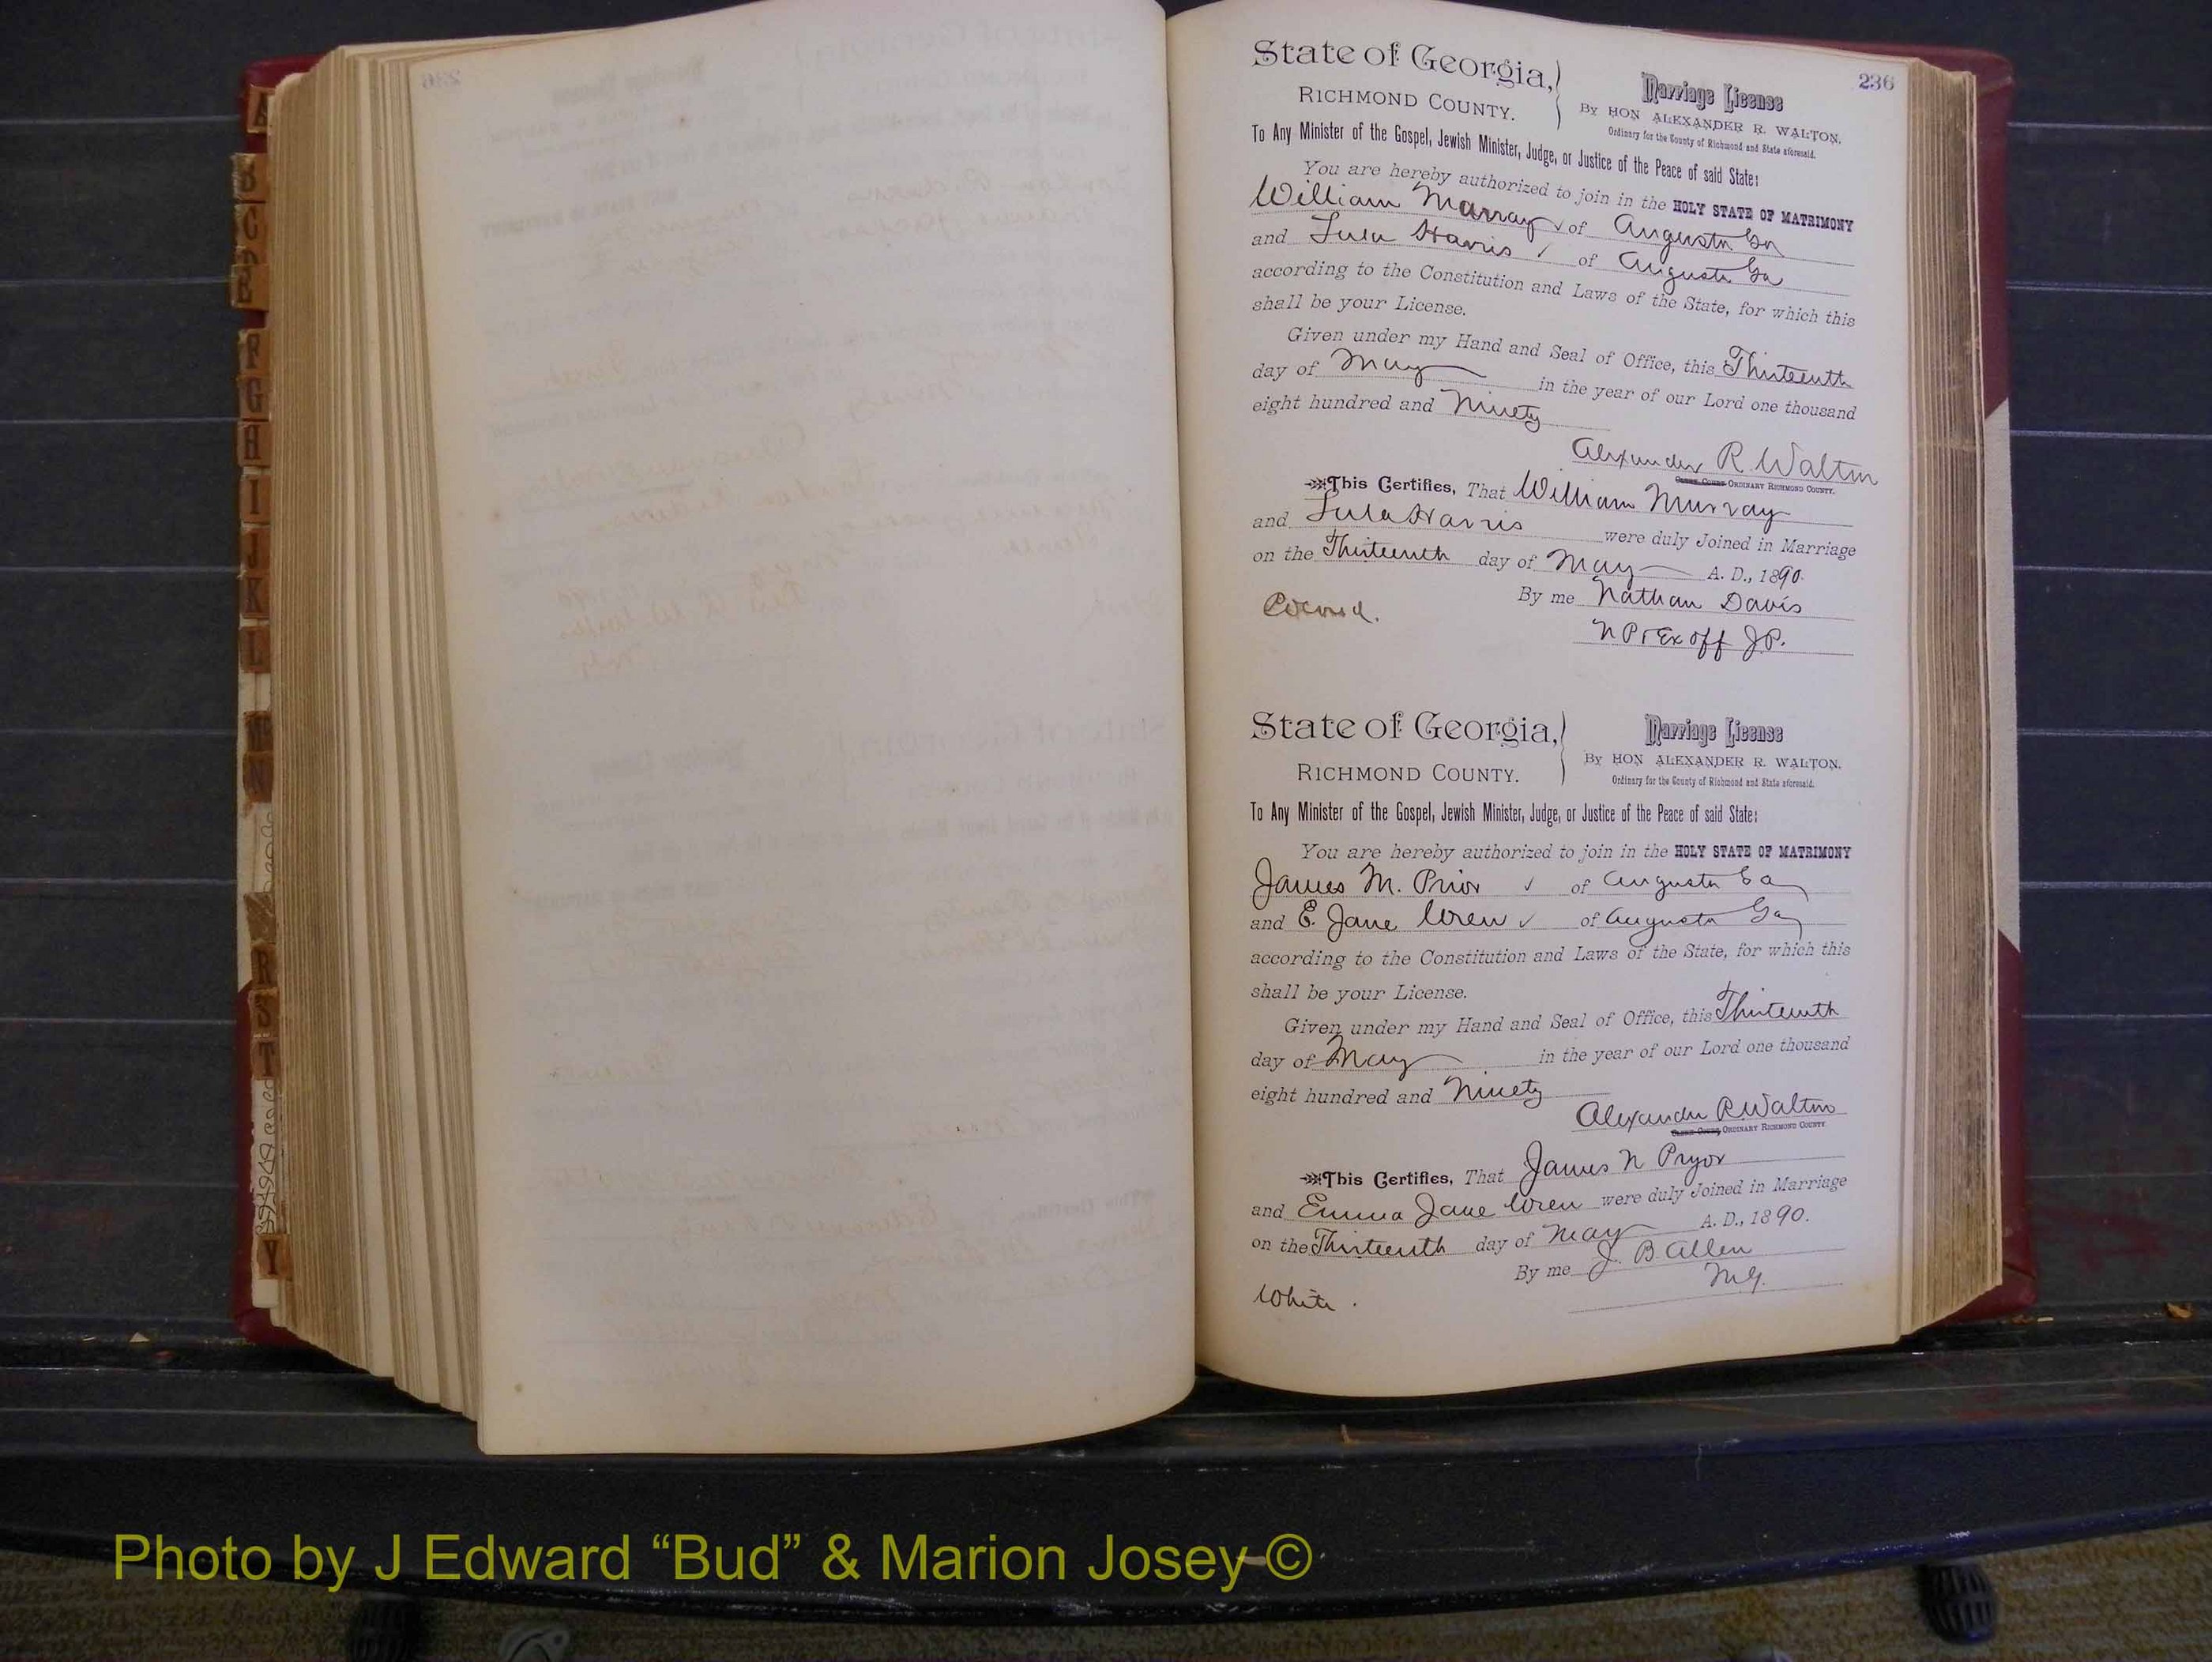 236
State of Georgia,
RICHMOND COUNTY.
Marriage License
By HON ALEXANDER R. WALTON,
Ordinary for the County of Richmond and State aforesaid.
To Any Minister of the Gospel, Jewish Minister, Judge, or Justice of the Peace of said State:
You are hereby authorized to join in the HOLY STATE OF MATRIMONY
William Murray ✓ of Augusta Ga
and Lula Harris ✓ of Augusta Ga
according to the Constitution and Laws of the State, for which this
shall be your License.
Given under my Hand and Seal of Office, this Thirteenth
day of May in the year of our Lord one thousand
eight hundred and Ninety
Alexander R Walton
ORDINARY RICHMOND COUNTY.
This Certifies, That William Murray
and Lula Harris were duly Joined in Marriage
on the Thirteenth day of May A. D., 1890.
By me Nathan Davis
Colored.
N P & Ex off J.P.
State of Georgia,
RICHMOND COUNTY.
Marriage License
By HON ALEXANDER R. WALTON,
Ordinary for the County of Richmond and State aforesaid.
To Any Minister of the Gospel, Jewish Minister, Judge, or Justice of the Peace of said State:
You are hereby authorized to join in the HOLY STATE OF MATRIMONY
James M. Prior ✓ of Augusta Ga
and E. Jane Wren ✓ of Augusta Ga
according to the Constitution and Laws of the State, for which this
shall be your License.
Given under my Hand and Seal of Office, this Thirteenth
day of May in the year of our Lord one thousand
eight hundred and Ninety
Alexander R Walton
ORDINARY RICHMOND COUNTY
This Certifies, That James N Pryor
and Emma Jane Wren were duly Joined in Marriage
on the Thirteenth day of May A. D., 1890.
By me J. B Allen
M.G.
White.
A
B
C
F
G
H
I
J
K
L
N
R
S
T
Y
Photo by J Edward “Bud” & Marion Josey ©